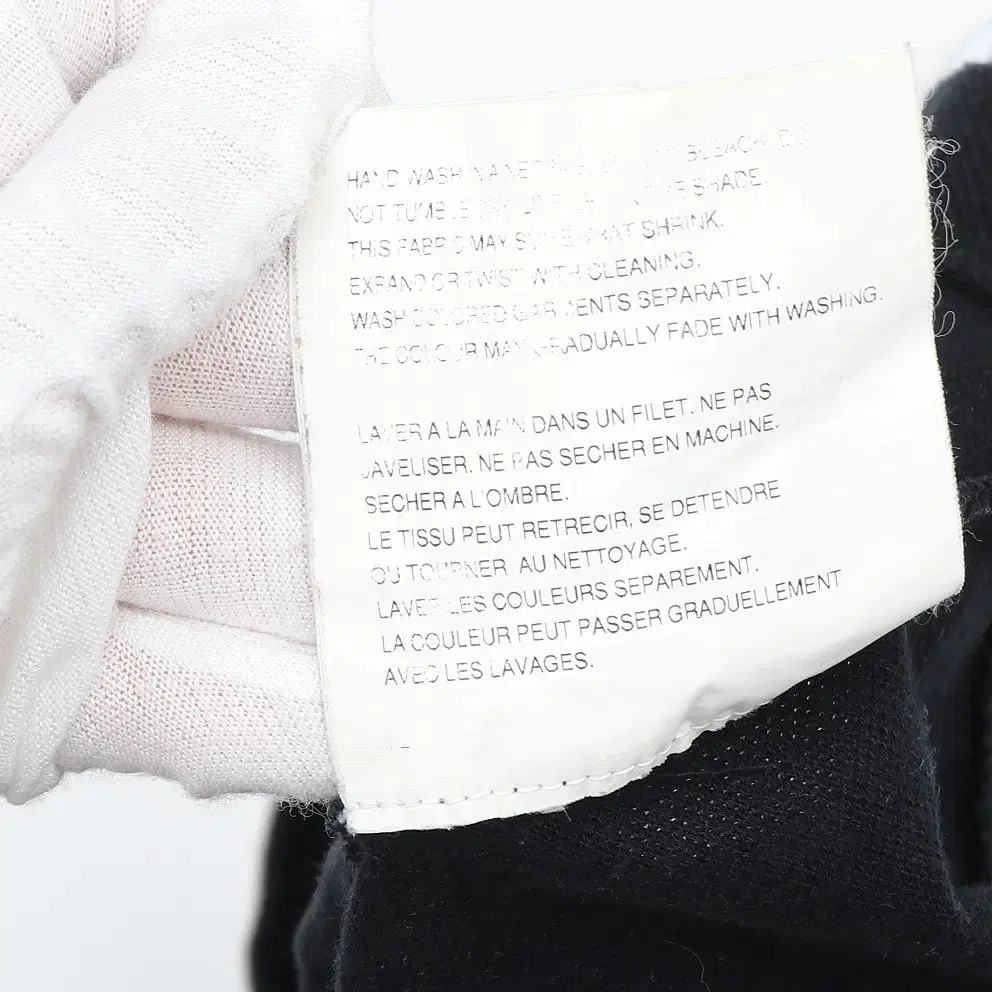 HAND WASH IN A NET. BLEACH. DO
NOT TUMBLE DRY. LINE DRY IN THE SHADE.
THIS FABRIC MAY SOMEWHAT SHRINK.
EXPAND OR TWIST WITH CLEANING.
WASH COLORED GARMENTS SEPARATELY.
THE COLOUR MAY GRADUALLY FADE WITH WASHING.
LAVER A LA MAIN DANS UN FILET. NE PAS
JAVELISER. NE PAS SECHER EN MACHINE.
SECHER A L'OMBRE.
LE TISSU PEUT RETRECIR, SE DETENDRE
OU TOURNER AU NETTOYAGE.
LAVER LES COULEURS SEPAREMENT.
LA COULEUR PEUT PASSER GRADUELLEMENT
AVEC LES LAVAGES.